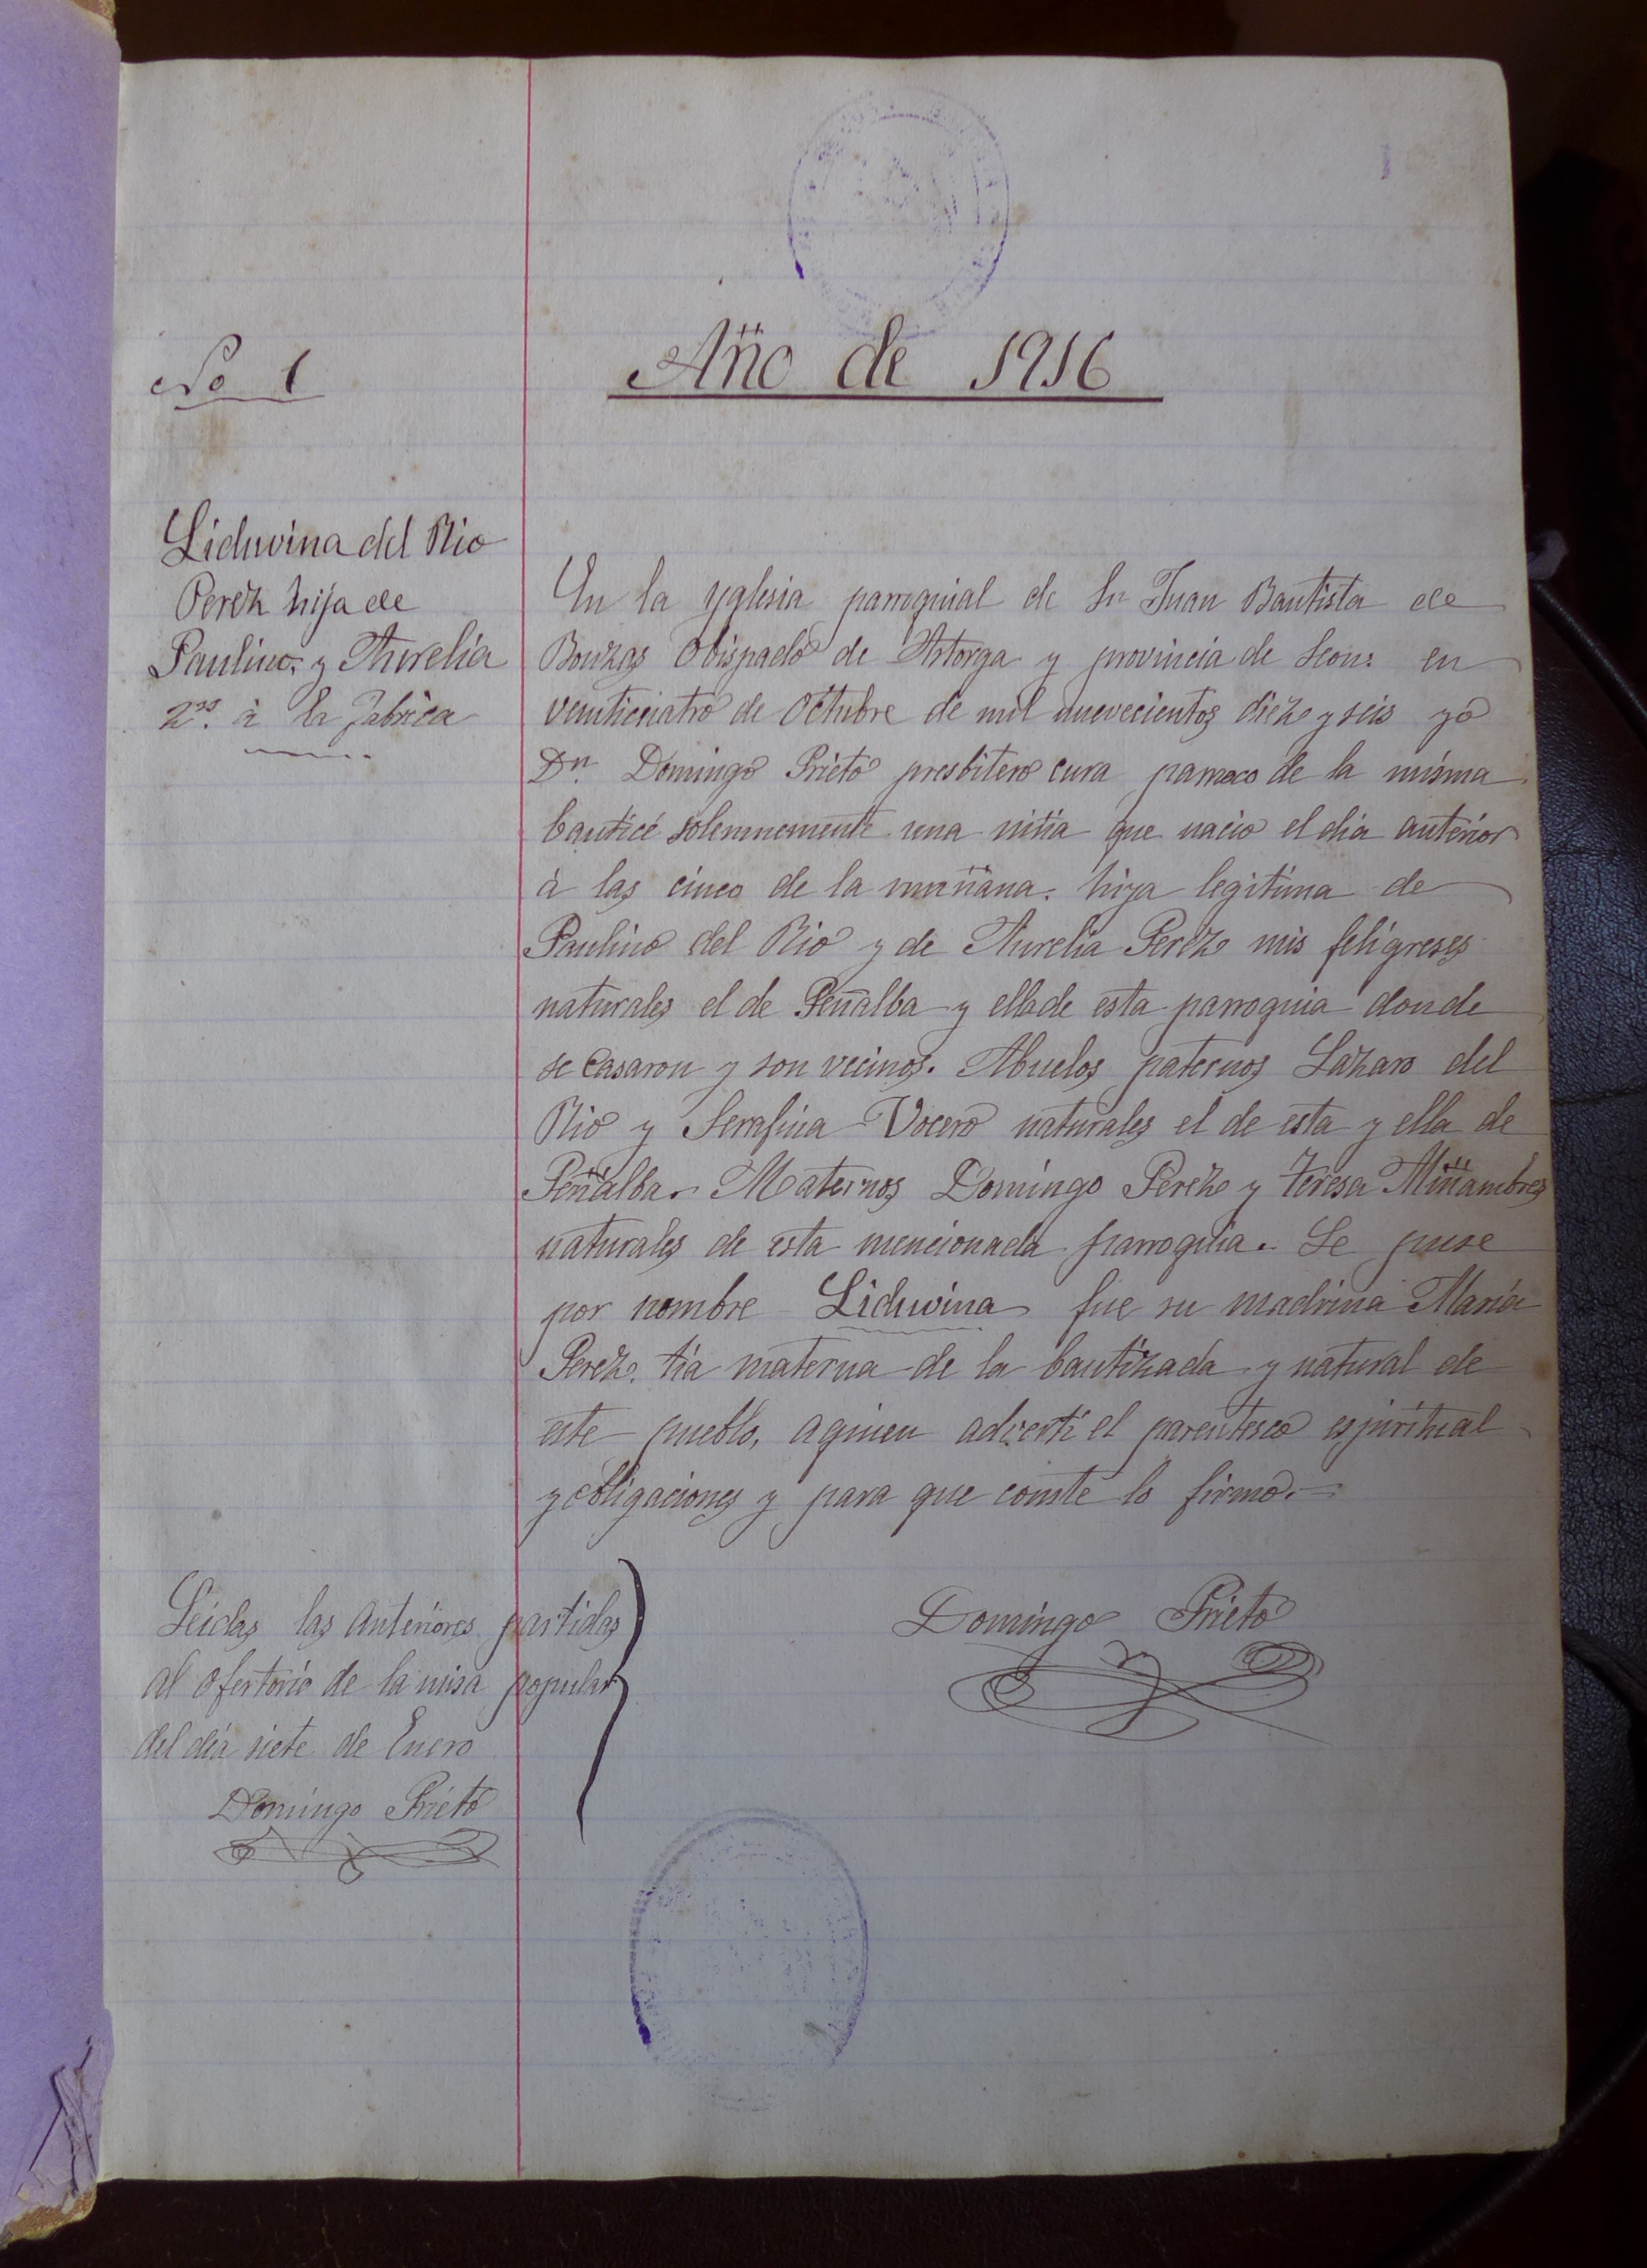 Año de 1916
No 1
Liduvina del Rio
Perez hija de
Paulino y Aurelia
2rs. à la fabrica
En la yglesia parroquial de Sn Juan Bautista de
Bouzas Obispado de Astorga y provincia de Leon: en
veinticuatro de Octubre de mil nuevecientos diez y seis yo
Dn. Domingo Prieto presbitero cura parroco de la misma
bauticé solemnemente una niña que nacio el dia anterior
à las cinco de la mañana: hija legitima de
Paulino del Rio y de Aurelia Perez mis feligreses
naturales el de Peñalba y ella de esta parroquia donde
se casaron y son vecinos. Abuelos paternos Lazaro del
Rio y Serafina Vocero naturales el de esta y ella de
Peñalba. Maternos Domingo Perez y Teresa Miñambres
naturales de esta mencionada parroquia. Le puse
por nombre Liduvina fue su madrina Maria
Perez. tia materna de la bautizada y natural de
este pueblo, a quien adverti el parentesco espiritual
y obligaciones y para que conste lo firmo.=
Domingo Prieto
Leidas las anteriores partidas
al ofertorio de la misa popular
del dia siete de Enero
Domingo Prieto